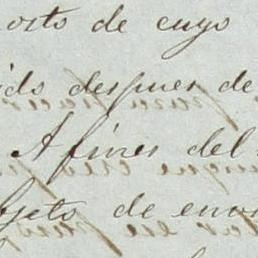 osto de cuyo
ids despues de
A fines del
bjeto de envi